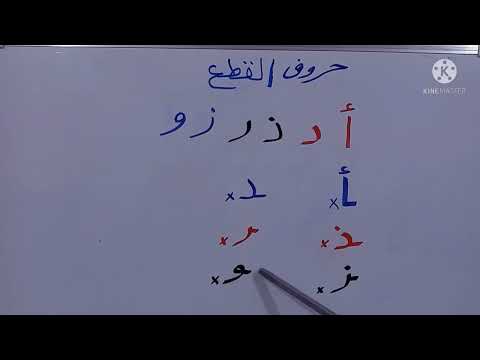 حروف القطع
KINEMASTER
أ د ذ ر ز و
ـأ × ـد ×
ـذ × ـر ×
ـز × ـو ×